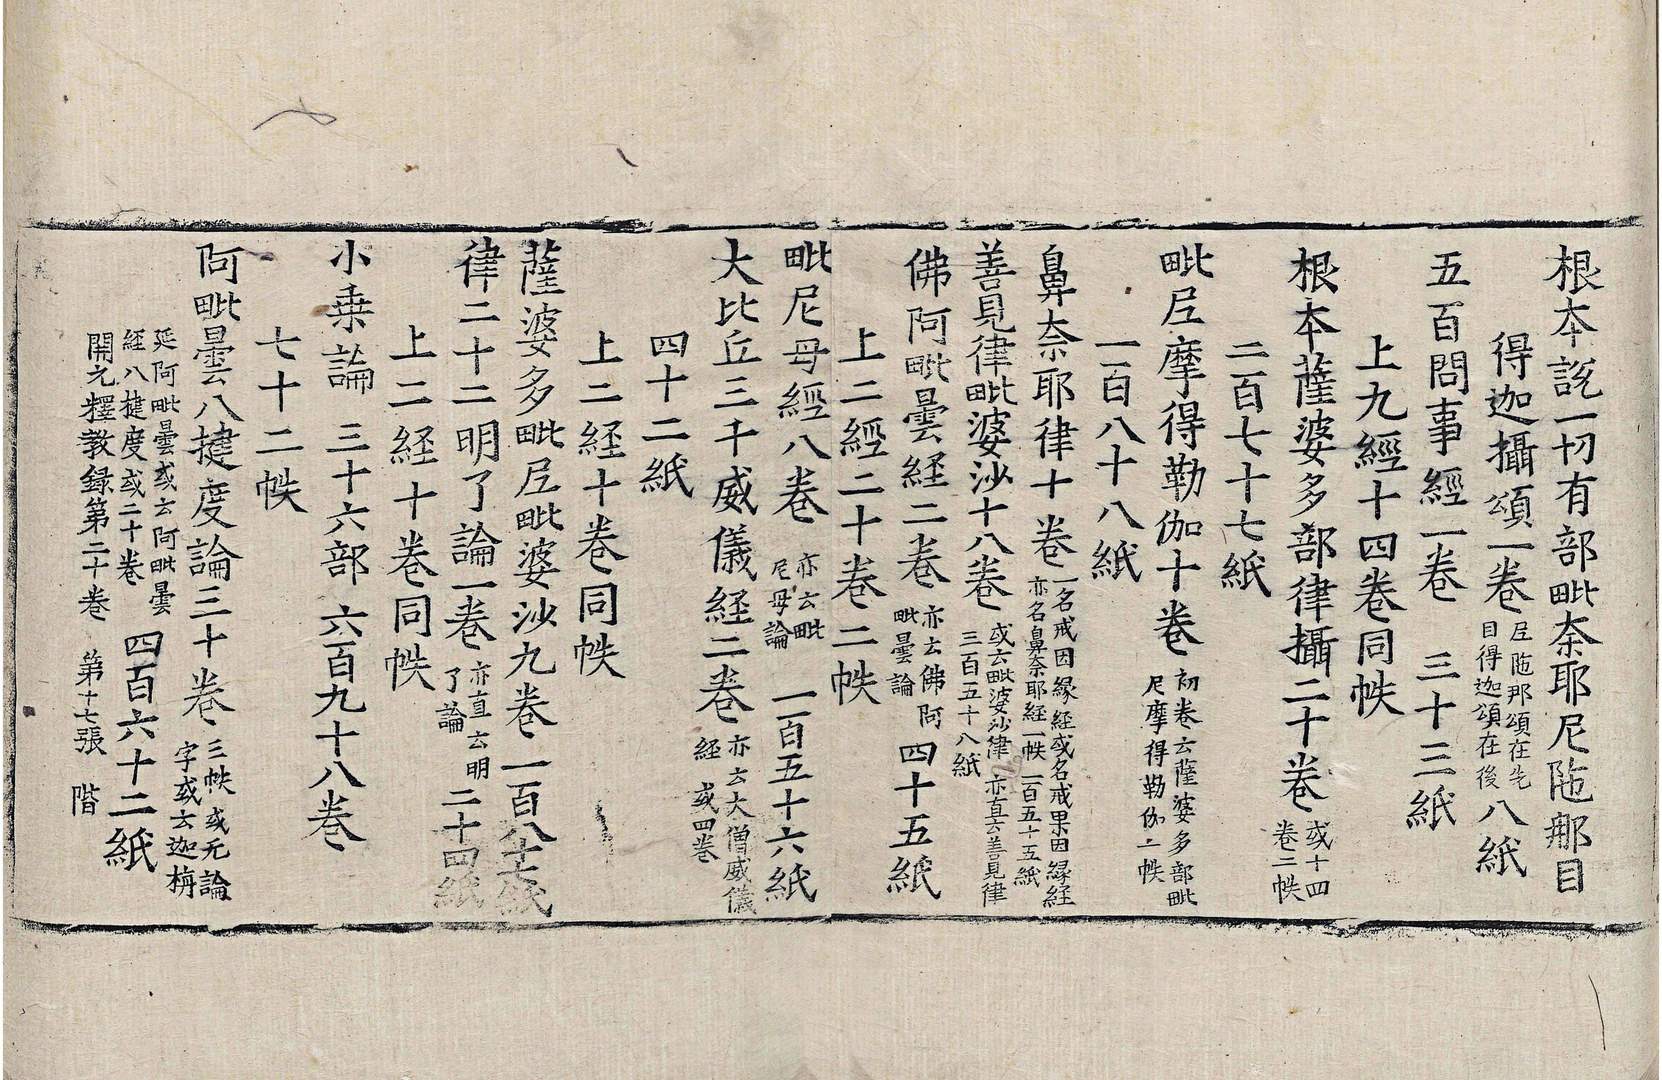 根本説一切有部毗奈耶尼陁那目
得迦攝頌一卷 尼陁那頌在先 目得迦頌在後 八紙
五百問事經一卷 三十三紙
上九經十四卷同帙
根本薩婆多部律攝二十卷 或十四 卷二帙
二百七十七紙
毗尼摩得勒伽十卷 初卷云薩婆多部毗 尼摩得勒伽一帙
一百八十八紙
鼻奈耶律十卷 一名戒因緣經或名戒果因緣経 亦名鼻奈耶経一帙一百五十五紙
善見律毗婆沙十八卷 或云毗婆沙律亦直云善見律 三百五十八紙
佛阿毗曇経二卷 亦云佛阿 毗曇論 四十五紙
上二經二十卷二帙
毗尼母經八卷 亦云毗 尼母論 一百五十六紙
大比丘三千威儀経二卷 亦云大僧威儀 経或四卷
四十二紙
上二経十卷同帙
薩婆多毗尼毗婆沙九卷 一百八十七紙
律二十二明了論一卷 亦直云明 了論 二十四紙
上二経十卷同帙
小乗論 三十六部 六百九十八卷
七十二帙
阿毗曇八揵度論三十卷 三帙或无論 字或云迦旃
延阿毗曇或云阿毗曇 経八揵度或二十卷 四百六十二紙
開元釋教録第二十卷 第十七張 階